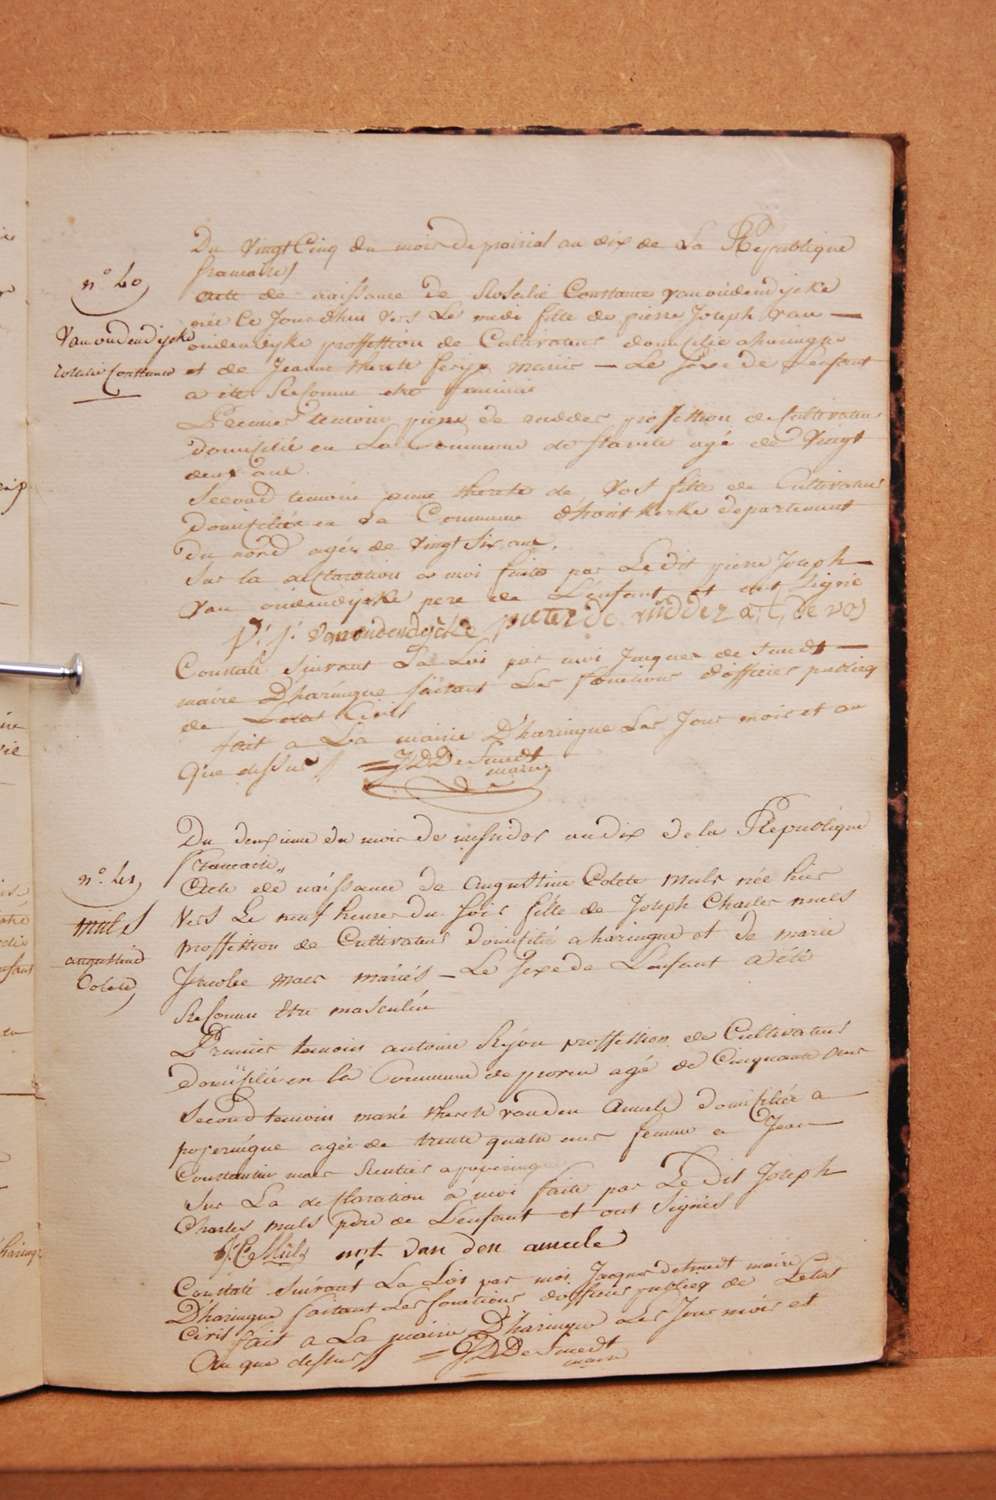 Du vingt Cinq du mois de prairial an dix de La Republique
francaise
n.° 40
acte de naissance de Rosalie Constance vanoudendijcke
née Ce Jourdhui vers Le midi fille de pierre Joseph van —
Vanoudendijcke
oudendijcke proffession de Cultivateur domicilié a haringue
Rosalie Constance
et de Jeanne therese mariés — Le Sexe de Lenfant
a été Reconnu etre feminin
Premier temoin pierre de rudder profession de Cultivateur
domicilié en La Commune de Stavele agé de Vingt
deux ans
Second temoin anne therese de Vos fille de Cultivateur
Domiciliée en La Commune dhontkerke departement
Du nord agée de vingt Six ans.
Sur la declaration a moi faite par Le dit pierre Joseph —
van oudendijcke pere de L'enfant et ont Signé
P: J: Vanoudendijcke pieter de rudder a, T, de vos
Constaté Suivant La Loi par moi Jacques de Smedt —
maire D'haringue faisant Les fonctions d'officier publicq
de Letat Civil
fait a La mairie D'haringue Les Jour mois et an
Que dessus = J D De Smedt
maire
Du deuxieme du mois de messidor an dix de la Republique
francaise,,
n.° 41
Acte de naissance de augustine Colete muls née hier
vers Le neuf heures du Soir fille de Joseph Charles muls
muls
proffession de Cultivateur Domicilié a haringue et de marie
augustine
Jacobe maes mariés — Le Sexe de Lenfant a été
Colete
Reconnu etre masculin
Premier temoin antoine proffession de Cultivateur
Domicilié en la Commune de proven agé de Cinquante ans
Second temoin marie therese vanden Amele domiciliée a
poperingue agée de trente quatre ans femme a Jean —
Constantin maes Rentier a poperinge
Sur La declaration a moi faite par Le Dit Joseph
Charles muls pere de L'enfant et ont Signés
J:C Muls m,t. van den ameele
Constaté Suivant La Loi par moi Jacques de smedt maire
D'haringue faisant Les fonctions d'officier publicq de Letat
Civil fait a La mairie D'haringue Les Jour mois et
An que dessus = J D De Smedt
maire